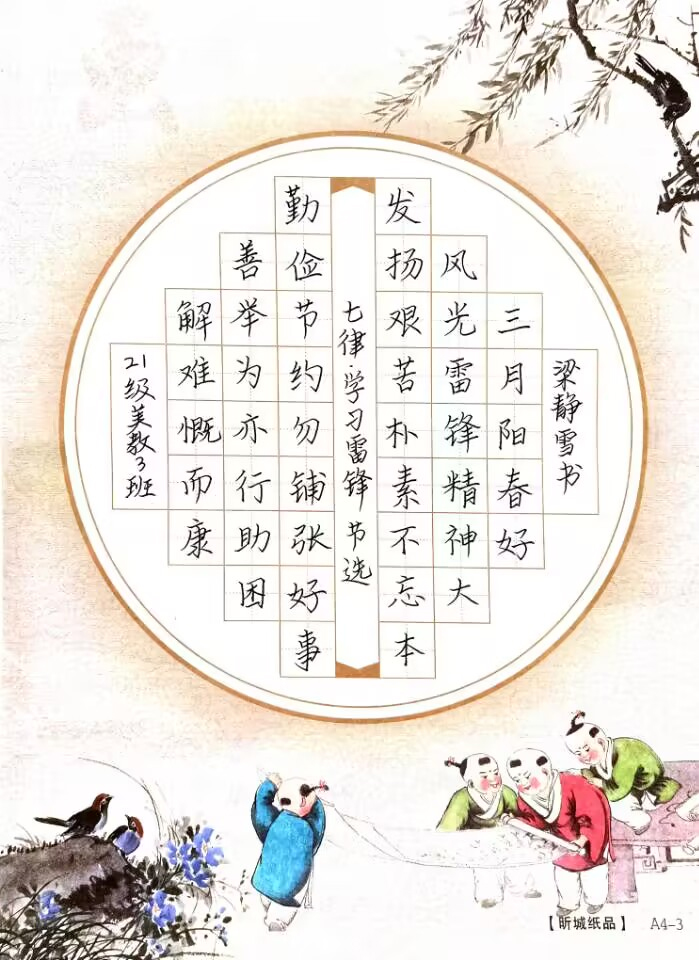 梁静雪书
三月阳春好
风光雷锋精神大
发扬艰苦朴素不忘本
七律学习雷锋节选
勤俭节约勿铺张好事
善举为亦行助困
解难慨而康
21级美教3班
【昕城纸品】 A4-3